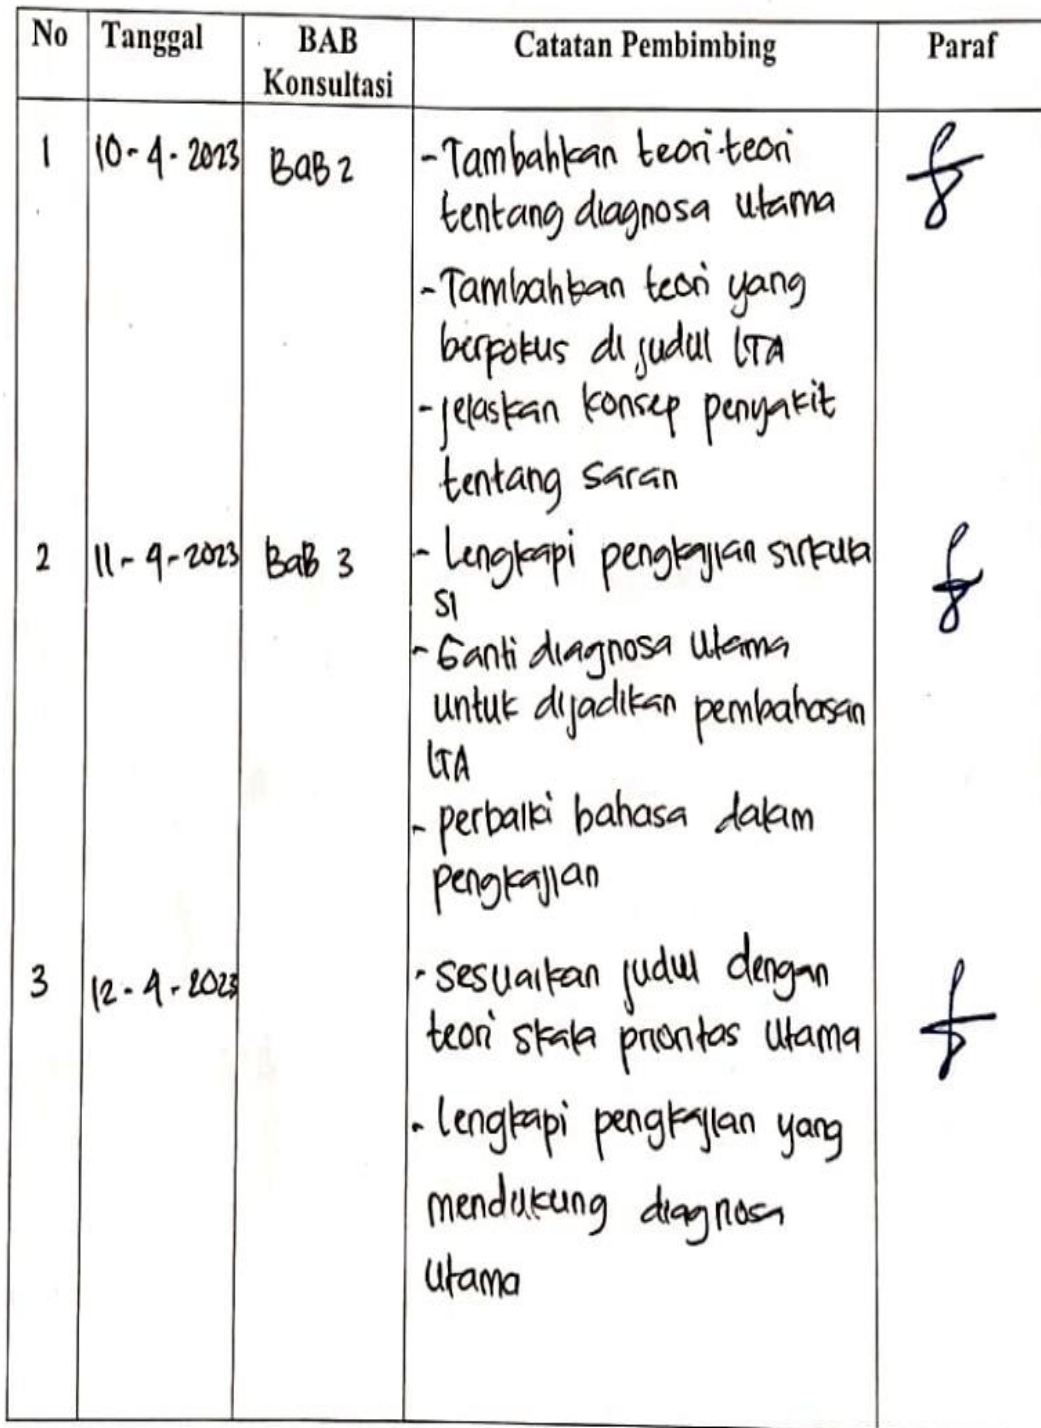 No Tanggal BAB Konsultasi Catatan Pembimbing Paraf
1 10-4-2023 BaB 2 - Tambahkan teori-teori
tentang diagnosa utama
- Tambahkan teori yang
berfokus di judul LTA
- jelaskan konsep penyakit
tentang saran
2 11-4-2023 BaB 3 - Lengkapi pengkajian sirkula
si
- Ganti diagnosa utama
untuk dijadikan pembahasan
LTA
- perbaiki bahasa dalam
pengkajian
3 12-4-2023 - sesuaikan judul dengan
teori skala prioritas utama
- Lengkapi pengkajian yang
mendukung diagnosa
utama